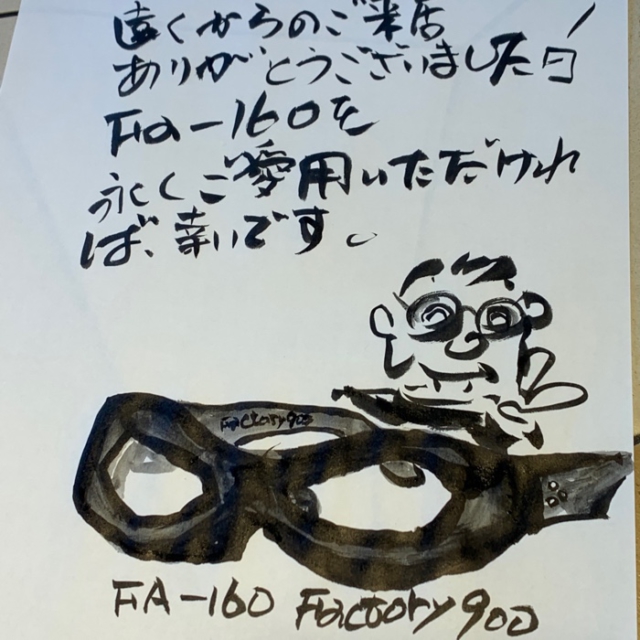 遠くからのご来店
ありがとうございました!
FA-160を
永くご愛用いただけれ
ば、幸いです。
Factory900
FA-160 Factory900